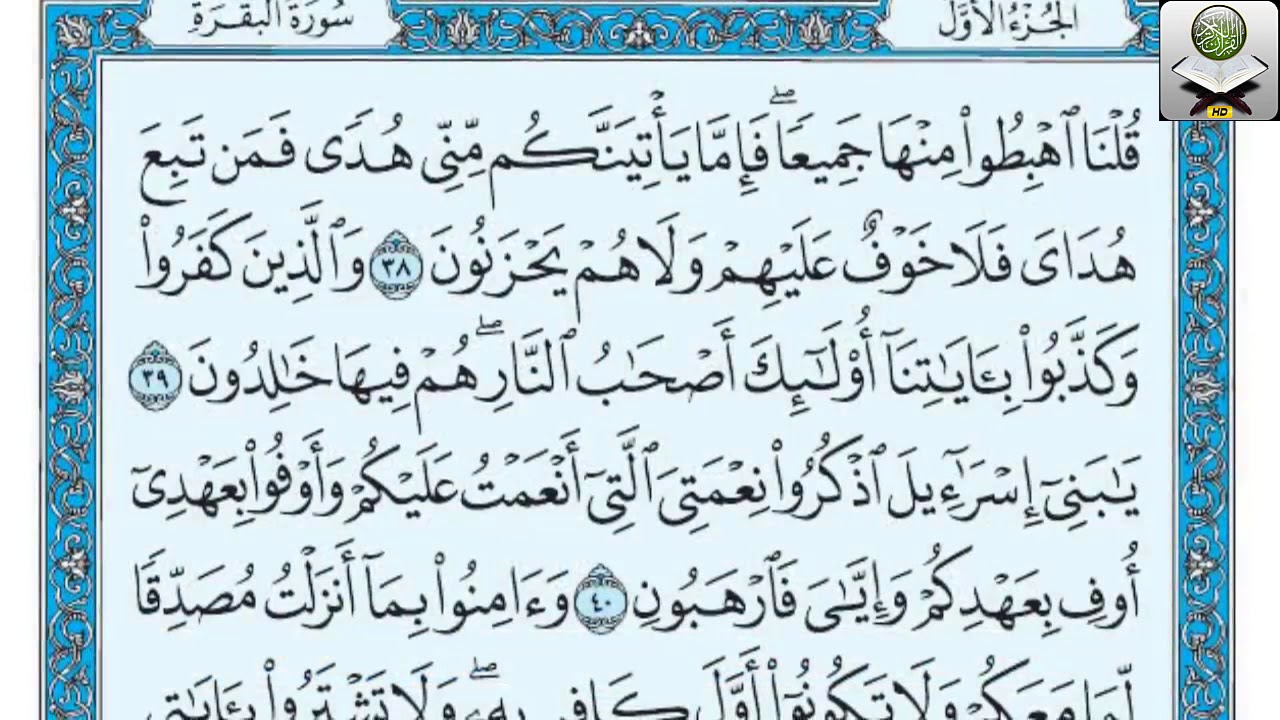 الجُزْءُ الأَوَّلُ
سُورَةُ البَقَرَةِ
قُلۡنَا ٱهۡبِطُواْ مِنۡهَا جَمِيعٗاۖ فَإِمَّا يَأۡتِيَنَّكُم مِّنِّي هُدٗى فَمَن تَبِعَ
هُدَايَ فَلَا خَوۡفٌ عَلَيۡهِمۡ وَلَا هُمۡ يَحۡزَنُونَ ٣٨ وَٱلَّذِينَ كَفَرُواْ
وَكَذَّبُواْ بِـَٔايَٰتِنَآ أُوْلَٰٓئِكَ أَصۡحَٰبُ ٱلنَّارِۖ هُمۡ فِيهَا خَٰلِدُونَ ٣٩
يَٰبَنِيٓ إِسۡرَٰٓءِيلَ ٱذۡكُرُواْ نِعۡمَتِيَ ٱلَّتِيٓ أَنۡعَمۡتُ عَلَيۡكُمۡ وَأَوۡفُواْ بِعَهۡدِيٓ
أُوفِ بِعَهۡدِكُمۡ وَإِيَّٰيَ فَٱرۡهَبُونِ ٤٠ وَءَامِنُواْ بِمَآ أَنزَلۡتُ مُصَدِّقٗا
لِّمَا مَعَكُمۡ وَلَا تَكُونُوٓاْ أَوَّلَ كَافِرِۭ بِهِۦۖ وَلَا تَشۡتَرُواْ بِـَٔايَٰتِي
HD